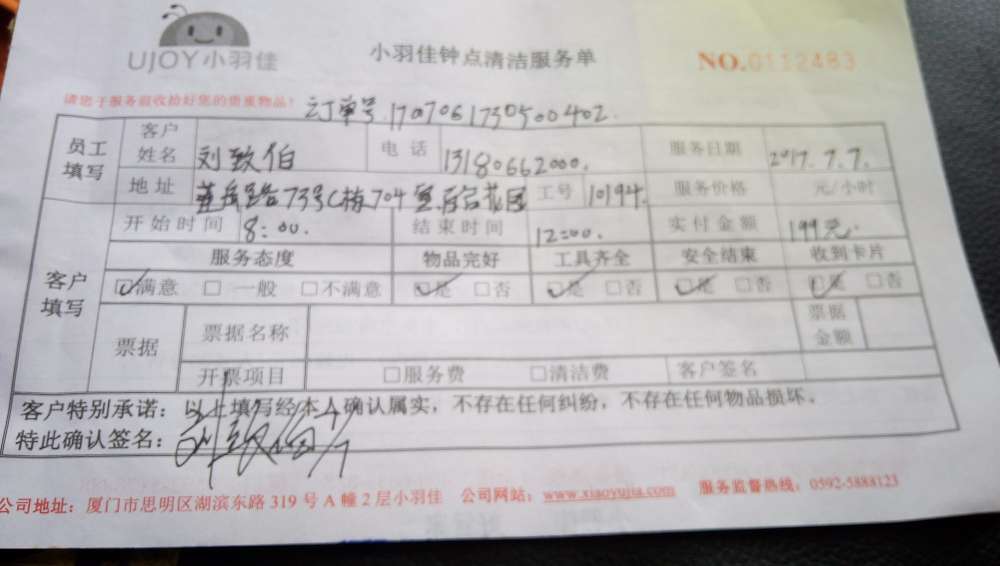 UJOY小羽佳
小羽佳钟点清洁服务单
NO.0112483
请您于服务前收拾好您的贵重物品！
订单号 1707061730500402.
员工填写 客户姓名 刘致伯 电话 13180662000. 服务日期 2017.7.7.
地址 莲岳路73号C栋704室 工号 10194. 服务价格 元/小时
客户填写 开始时间 8:00. 结束时间 12:00. 实付金额 199元.
服务态度 物品完好 工具齐全 安全结束 收到卡片
☑满意 □一般 □不满意 ☑是 □否 ☑是 □否 ☑是 □否 ☑是 □否
票据 票据名称 票据金额
开票项目 □服务费 □清洁费 客户签名
客户特别承诺：以上填写经本人确认属实，不存在任何纠纷，不存在任何物品损坏。
特此确认签名：刘致伯
公司地址：厦门市思明区湖滨东路319号A幢2层小羽佳 公司网站：www.xiaoyujia.com 服务监督热线：0592-5888123